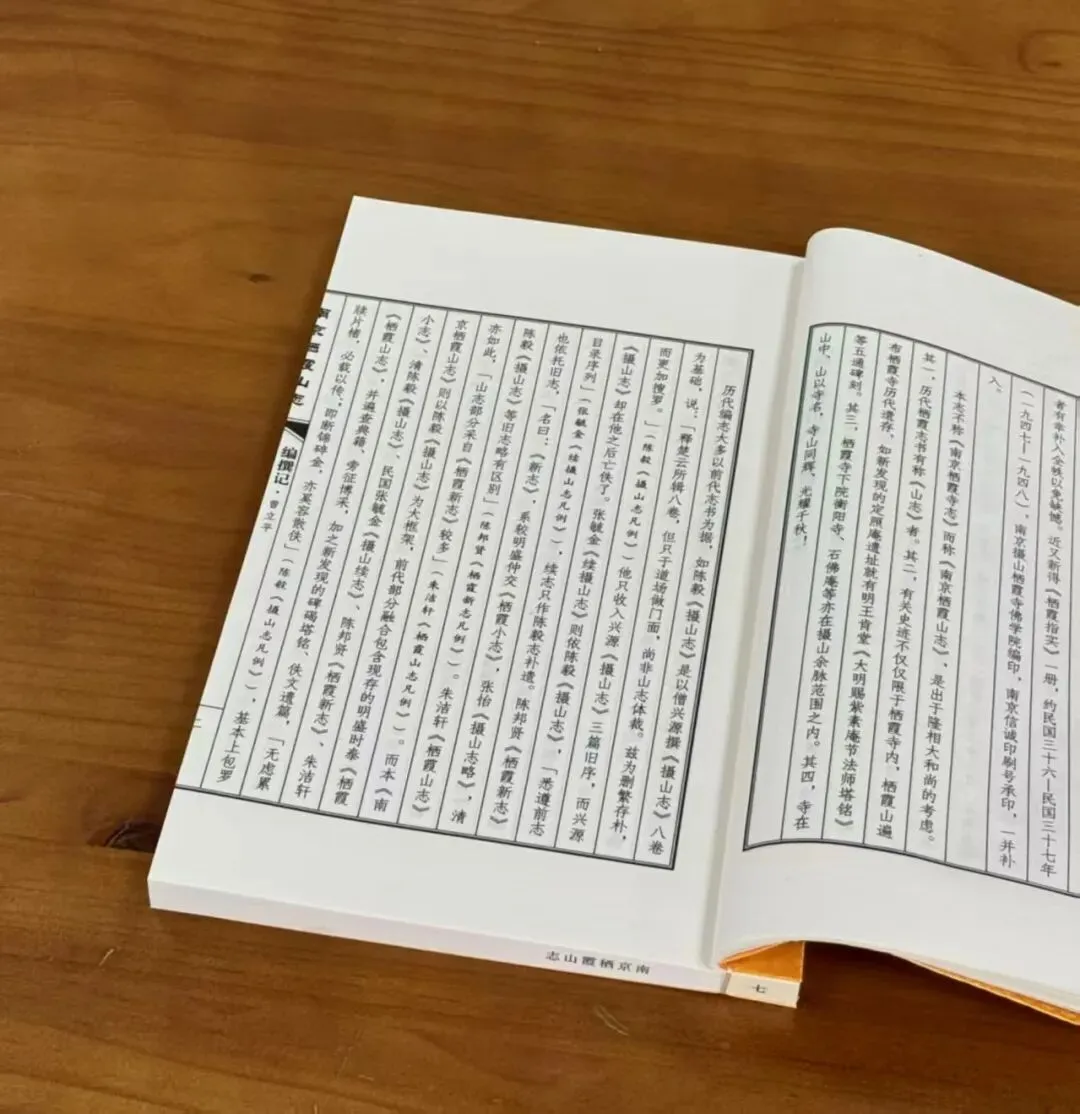 者有幸补入全帙以免缺憾。近又新得《栖霞指实》一册，约民国三十六—民国三十七年
（一九四七—一九四八），南京摄山栖霞寺佛学院编印，南京信诚印刷号承印，一并补
入。
本志不称《南京栖霞寺志》而称《南京栖霞山志》，是出于隆相大和尚的考虑。
其一，历代栖霞寺志书有称《山志》者。其二，有关史迹不仅仅限于栖霞寺内，栖霞山遍
布栖霞寺历代遗存，如新发现的定照庵遗址就有明王肯堂《大明赐紫素庵节法师塔铭》
等五通碑刻。其三，栖霞寺下院衡阳寺、石佛庵等亦在摄山余脉范围之内。其四，寺在
山中，山以寺名，寺山同辉，光耀千秋！
历代编志大多以前代志书为据，如陈毅《摄山志》是以僧兴源撰《摄山志》八卷
为基础，说：「释楚云所辑八卷，但只于道场做门面，尚非山志体裁。兹为删繁存朴，
而更加搜罗。」（陈毅《摄山志凡例》）他只收入兴源《摄山志》三篇旧序，而兴源
《摄山志》却在他之后亡佚了。张毓金《续摄山志》则依陈毅《摄山志》，「悉遵前志
目录序列」（张毓金《续摄山志凡例》），续志只作陈毅志补遗。陈邦贤《栖霞新志》
也依托旧志，「名曰：《新志》，系较明盛仲交《栖霞小志》，张怡《摄山志略》，清
陈毅《摄山志》等旧志略有区别」（陈邦贤《栖霞新志凡例》）。朱洁轩《栖霞山志》
亦如此，「山志部分采自《栖霞新志》较多」（朱洁轩《栖霞山志凡例》）。而本《南
京栖霞山志》则以陈毅《摄山志》为大框架，前代部分融合包含现存的明盛时泰《栖霞
小志》、清陈毅《摄山志》、民国张毓金《摄山续志》、陈邦贤《栖霞新志》、朱洁轩
《栖霞山志》，并遍查典籍，旁征博采，加之新发现的碑碣塔铭、佚文遗篇，「无虑累
牍片楮，必载以传；即断锦碎金，亦奚容散佚」（陈毅《摄山志凡例》），基本上包罗
南京栖霞山志
编撰记·曹立平
二
南京栖霞山志
七